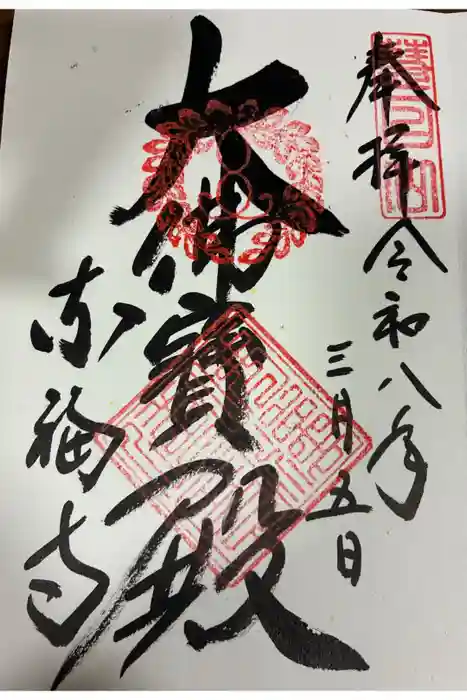 奉拝
令和八年
三月五日
大佛寳殿
東福寺